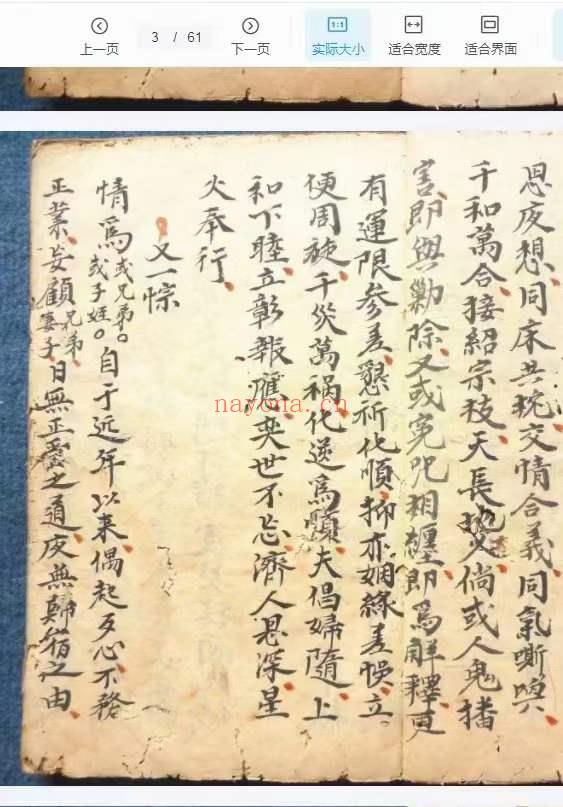 上一页
3 / 61
下一页
1:1
实际大小
适合宽度
适合界面
思夜想同床共枕交情合義同氣嘶
千和萬合接紹宗枝天長地久倘或人鬼播
害即與勦除又或冤咒相纏即為解釋更
有運限參差懇祈化順抑亦姻緣差悞立
便周旋千災萬禍化逆為順夫倡婦隨上
和下睦立彰報應奕世不忘濟人恩深星
火奉行
又一悰
情為或兄弟。或子姪。自于近年以来偶起歹心不務
正業妄顧兄弟妻子日無正之道夜無歸宿之由
nayona.cn